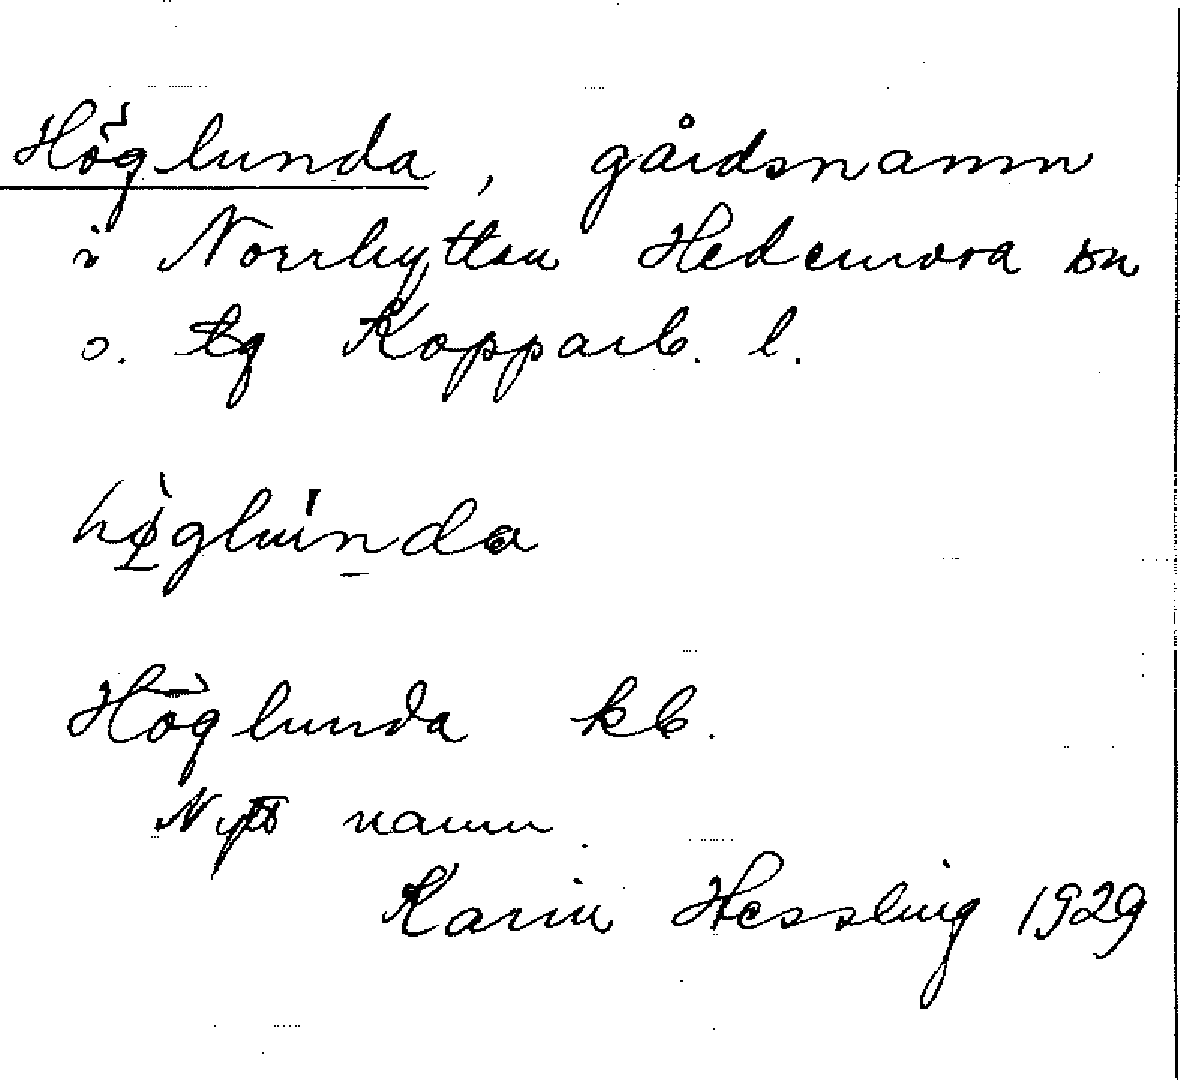 Höglunda, gårdsnamn
i Norrhyttan Hedemora sn
o. tg Kopparb. l.
hø̀glúnda
Höglunda kb.
Nytt namn.
Karin Hessling 1929